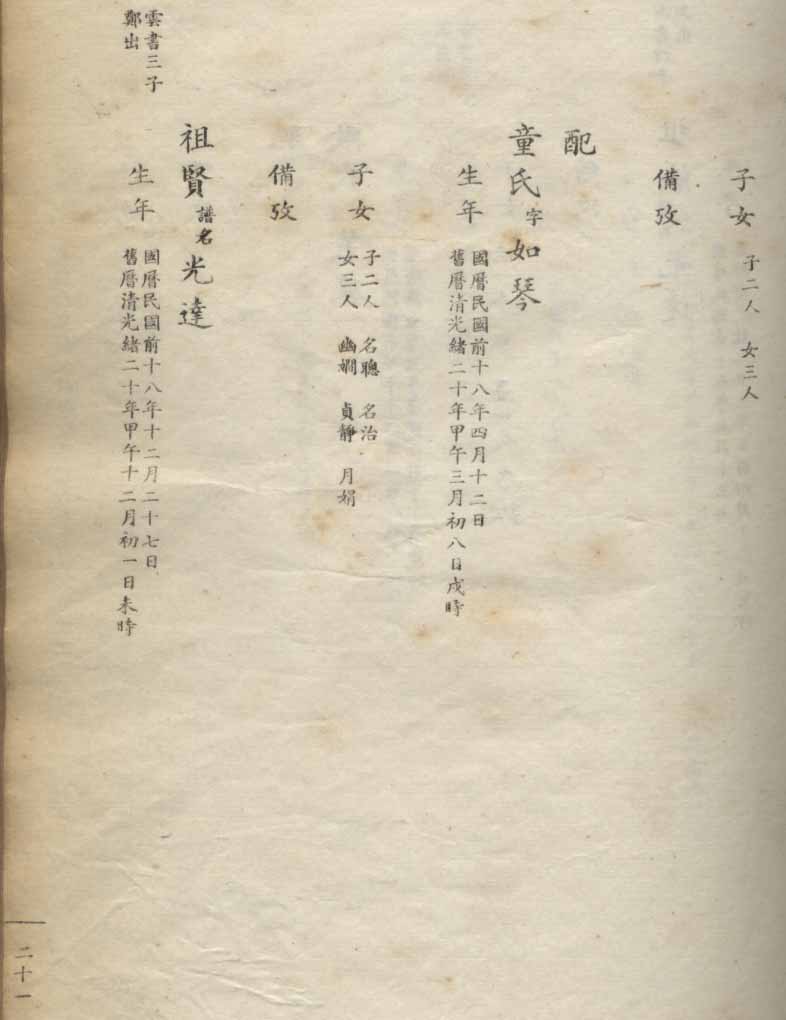 子女 子二人 女三人
備攷
配
童氏 字 如琴
生年
國曆民國前十八年四月十二日
舊曆清光緒二十年甲午三月初八日戌時
子女
子二人 名聰 名治
女三人 幽嫻 貞靜 月娟
備攷
雲書三子
鄭出
祖賢 譜名 光達
生年
國曆民國前十八年十二月二十七日
舊曆清光緒二十年甲午十二月初一日未時
二十一